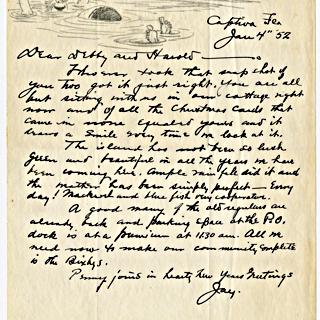 Captiva Fla
Jan 4" 52
Dear Detty and Harold
Whoever took that snap shot of
you two got it just right. You are all
but sitting with us in our cottage right
now and of all the Christmas cards that
came in none equaled yours and it
draws a smile every time we look at it.
The island has not been so lush
green and beautiful in all the years we have
been coming here. Ample rain fall did it and
the weather has been simply perfect — Every
day! Mackerel and blue fish very cooperative.
A good many of the old regulars are
already back and parking space at the P.O.
dock is at a premium at 11:30 am. All we
need now to make our community complete
is the Bixbys.
Penny joins in hearty New Years Greetings
Jay.